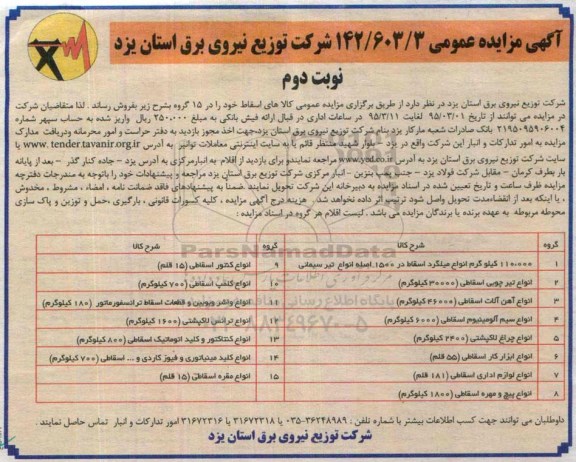 آگهی مزایده عمومی ۱۴۲/۶۰۳/۳ شرکت توزیع نیروی برق استان یزد
نوبت دوم
شرکت توزیع نیروی برق استان یزد در نظر دارد از طریق برگزاری مزایده عمومی کالا های اسقاط خود را در ۱۵ گروه بشرح زیر بفروش رساند . لذا متقاضیان شرکت
در مزایده می توانند از تاریخ ۹۵/۰۳/۰۱ لغایت ۹۵/۳/۱۱ در ساعات اداری در قبال ارائه فیش بانکی به مبلغ ۲۵۰.۰۰۰ ریال واریز شده به حساب سپهر شماره
۲۱۹۵۰۹۵۹۰۶۰۰۴ بانک صادرات شعبه مارکار یزد بنام شرکت توزیع نیروی برق استان یزد،جهت اخذ مجوز بازدید به دفتر حراست و امور محرمانه ودریافت مدارک
مزایده به امور تدارکات و انبار این شرکت واقع در یزد - بلوار منتظر قائم یا به سایت اینترنتی معاملات توانیر به آدرس www.tender.tavanir.org.ir یا
سایت شرکت توزیع نیروی برق استان یزد به آدرس www.yed.co.ir مراجعه نمایندو برای بازدید از اقلام به انبارمرکزی به آدرس یزد - جاده کنار گذر - بعد از پایانه
بار بطرف کرمان - مقابل شرکت فولاد یزد - جنب پمپ بنزین - انبار مرکزی شرکت توزیع نیروی برق استان یزد مراجعه و پیشنهادات خود را باتوجه به مندرجات دفترچه
مزایده ظرف ساعت و تاریخ تعیین شده در اسناد مزایده به دبیرخانه این شرکت تحویل نمایند ضمنا به پیشنهادهای فاقد ضمانت نامه ، امضاء ، مشروط ، مخدوش
، یا اینکه بعد از انقضاءمدت تحویل واصل شود ترتیب اثر داده نخواهد شد . هزینه درج آگهی مزایده ، کلیه کسورات قانونی ، بارگیری ،حمل و توزین و پاک سازی
محوطه مربوطه به عهده برنده یا برندگان مزایده می باشد . لیست اقلام هر گروه در اسناد مزایده :
گروه شرح کالا گروه شرح کالا
۱ ۱۱۰.۰۰۰ کیلو گرم انواع میلگرد اسقاط در ۱۵۰۰ اصله انواع تیر سیمانی ۹ انواع کنتور اسقاطی (۱۵ قلم)
۲ انواع تیر چوبی اسقاطی (۳۰۰۰۰ کیلوگرم) ۱۰ انواع کلمپ اسقاطی (۷۰۰ کیلوگرم)
۳ انواع آهن آلات اسقاطی (۴۶۰۰۰ کیلوگرم) ۱۱ انواع واشر وبوبین و قطعات اسقاط ترانسفورماتور (۱۸۰ کیلوگرم)
۴ انواع سیم آلومینیوم اسقاطی (۶۰۰۰ کیلوگرم) ۱۲ انواع ترانس لاکپشتی (۱۶۰۰ کیلوگرم)
۵ انواع چراغ لاکپشتی (۲۴۰۰ کیلوگرم) ۱۳ انواع کنتاکتور و کلید اتوماتیک اسقاطی (۸۰۰ کیلوگرم)
۶ انواع ابزار کار اسقاطی (۵۵ قلم) ۱۴ انواع کلید مینیاتوری و فیوز کاردی و ... اسقاطی (۷۰۰ کیلوگرم)
۷ انواع لوازم اداری اسقاطی (۱۸۱ قلم) ۱۵ انواع مقره اسقاطی (۱۵ قلم)
۸ انواع پیچ و مهره اسقاطی (۱۸۰۰ کیلوگرم)
ParsNamadData
پایگاه اطلاع رسانی مناقصه
۰۲۱-۸۸۳۴۹۶۷۰-۵
داوطلبان می توانند جهت کسب اطلاعات بیشتر با شماره تلفن : ۳۶۲۴۸۹۸۹-۰۳۵ یا ۳۱۶۷۲۳۱۸ یا ۳۱۶۷۲۳۱۶ امور تدارکات و انبار تماس حاصل نمایند .
شرکت توزیع نیروی برق استان یزد